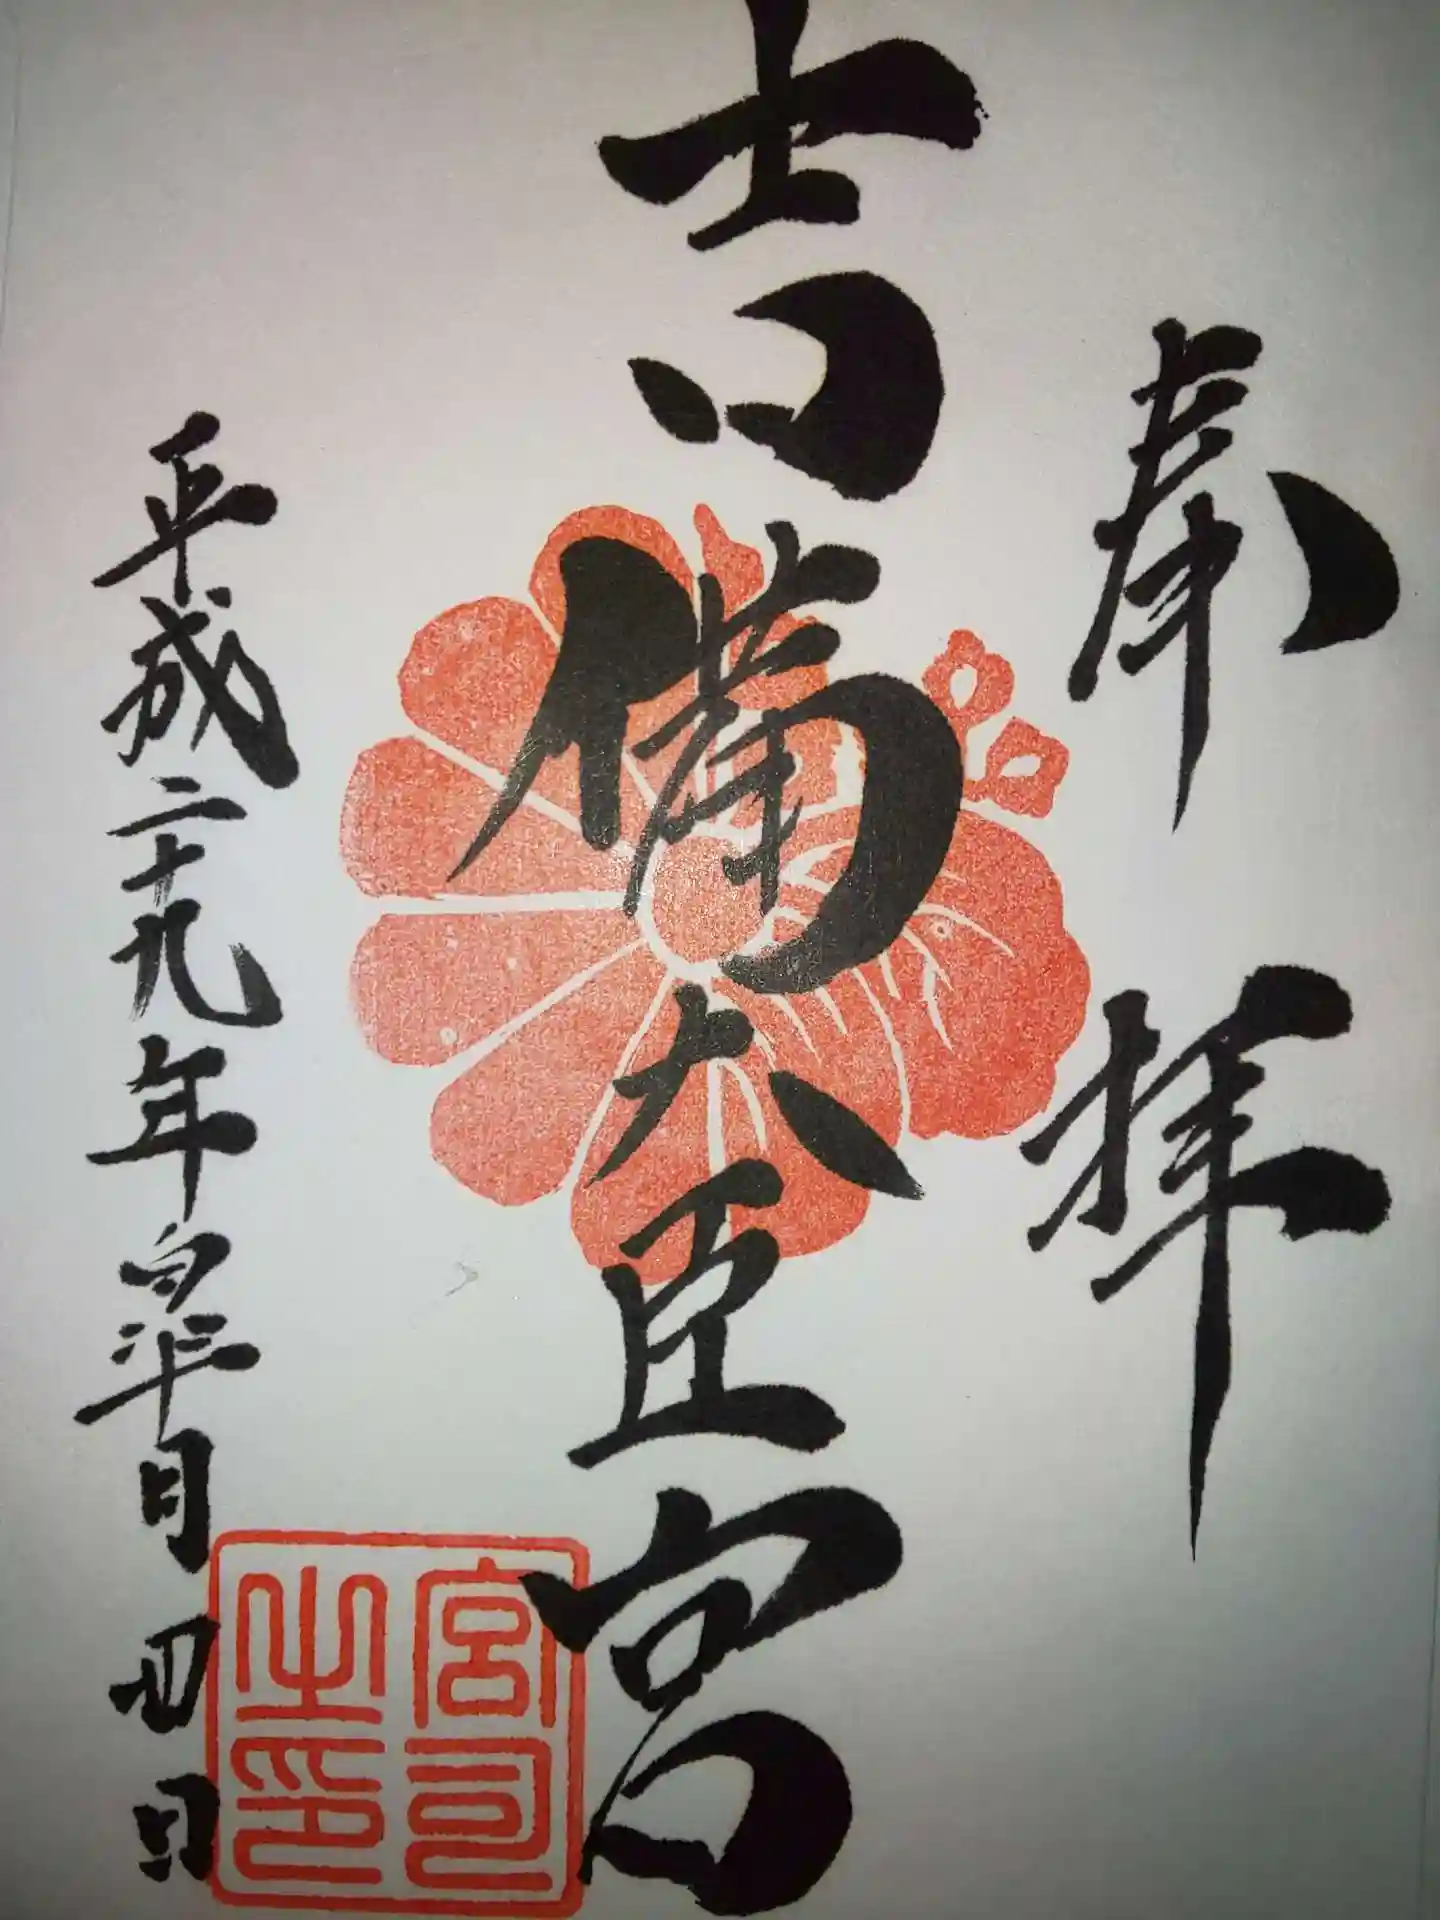 奉拝
吉備大臣宮
平成二十九年皐月四日
宮司
之印